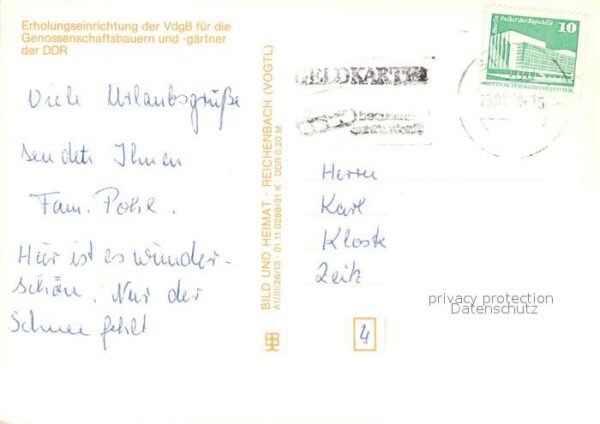 Erholungseinrichtung der VdgB für die
Genossenschaftsbauern und -gärtner
der DDR
Viele Urlaubsgrüße
sendet Ihnen
Fam. Pohl.
Hier ist es wunder-
schön. Nur der
Schnee fehlt
BILD UND HEIMAT · REICHENBACH (VOGTL)
A1/III/26/13 · 01 11 0288/31 K · DDR 0,20 M
GELDKARTE
Berlin, Palast der Republik
10
Herrn
Karl
Kloste
Zeitz
4
privacy protection
Datenschutz